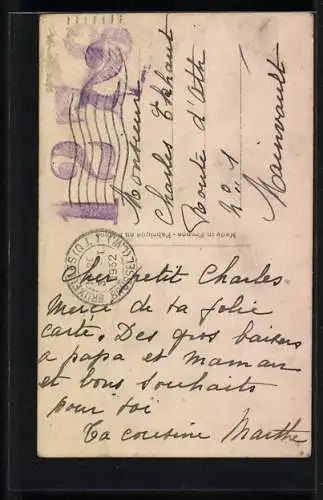 1812
Monsieur
Charles Ekhaut
Route d'Ath
N° 1
Mainvault
Made in France - Fabriqué en
BRUXELLES (Q.L.)
1932
BRUSSEL (Q.L.W.)
Cher petit Charles
Merci de ta jolie
carte. Des gros baisers
a papa et maman
et bons souhaits
pour toi
Ta cousine Marthe